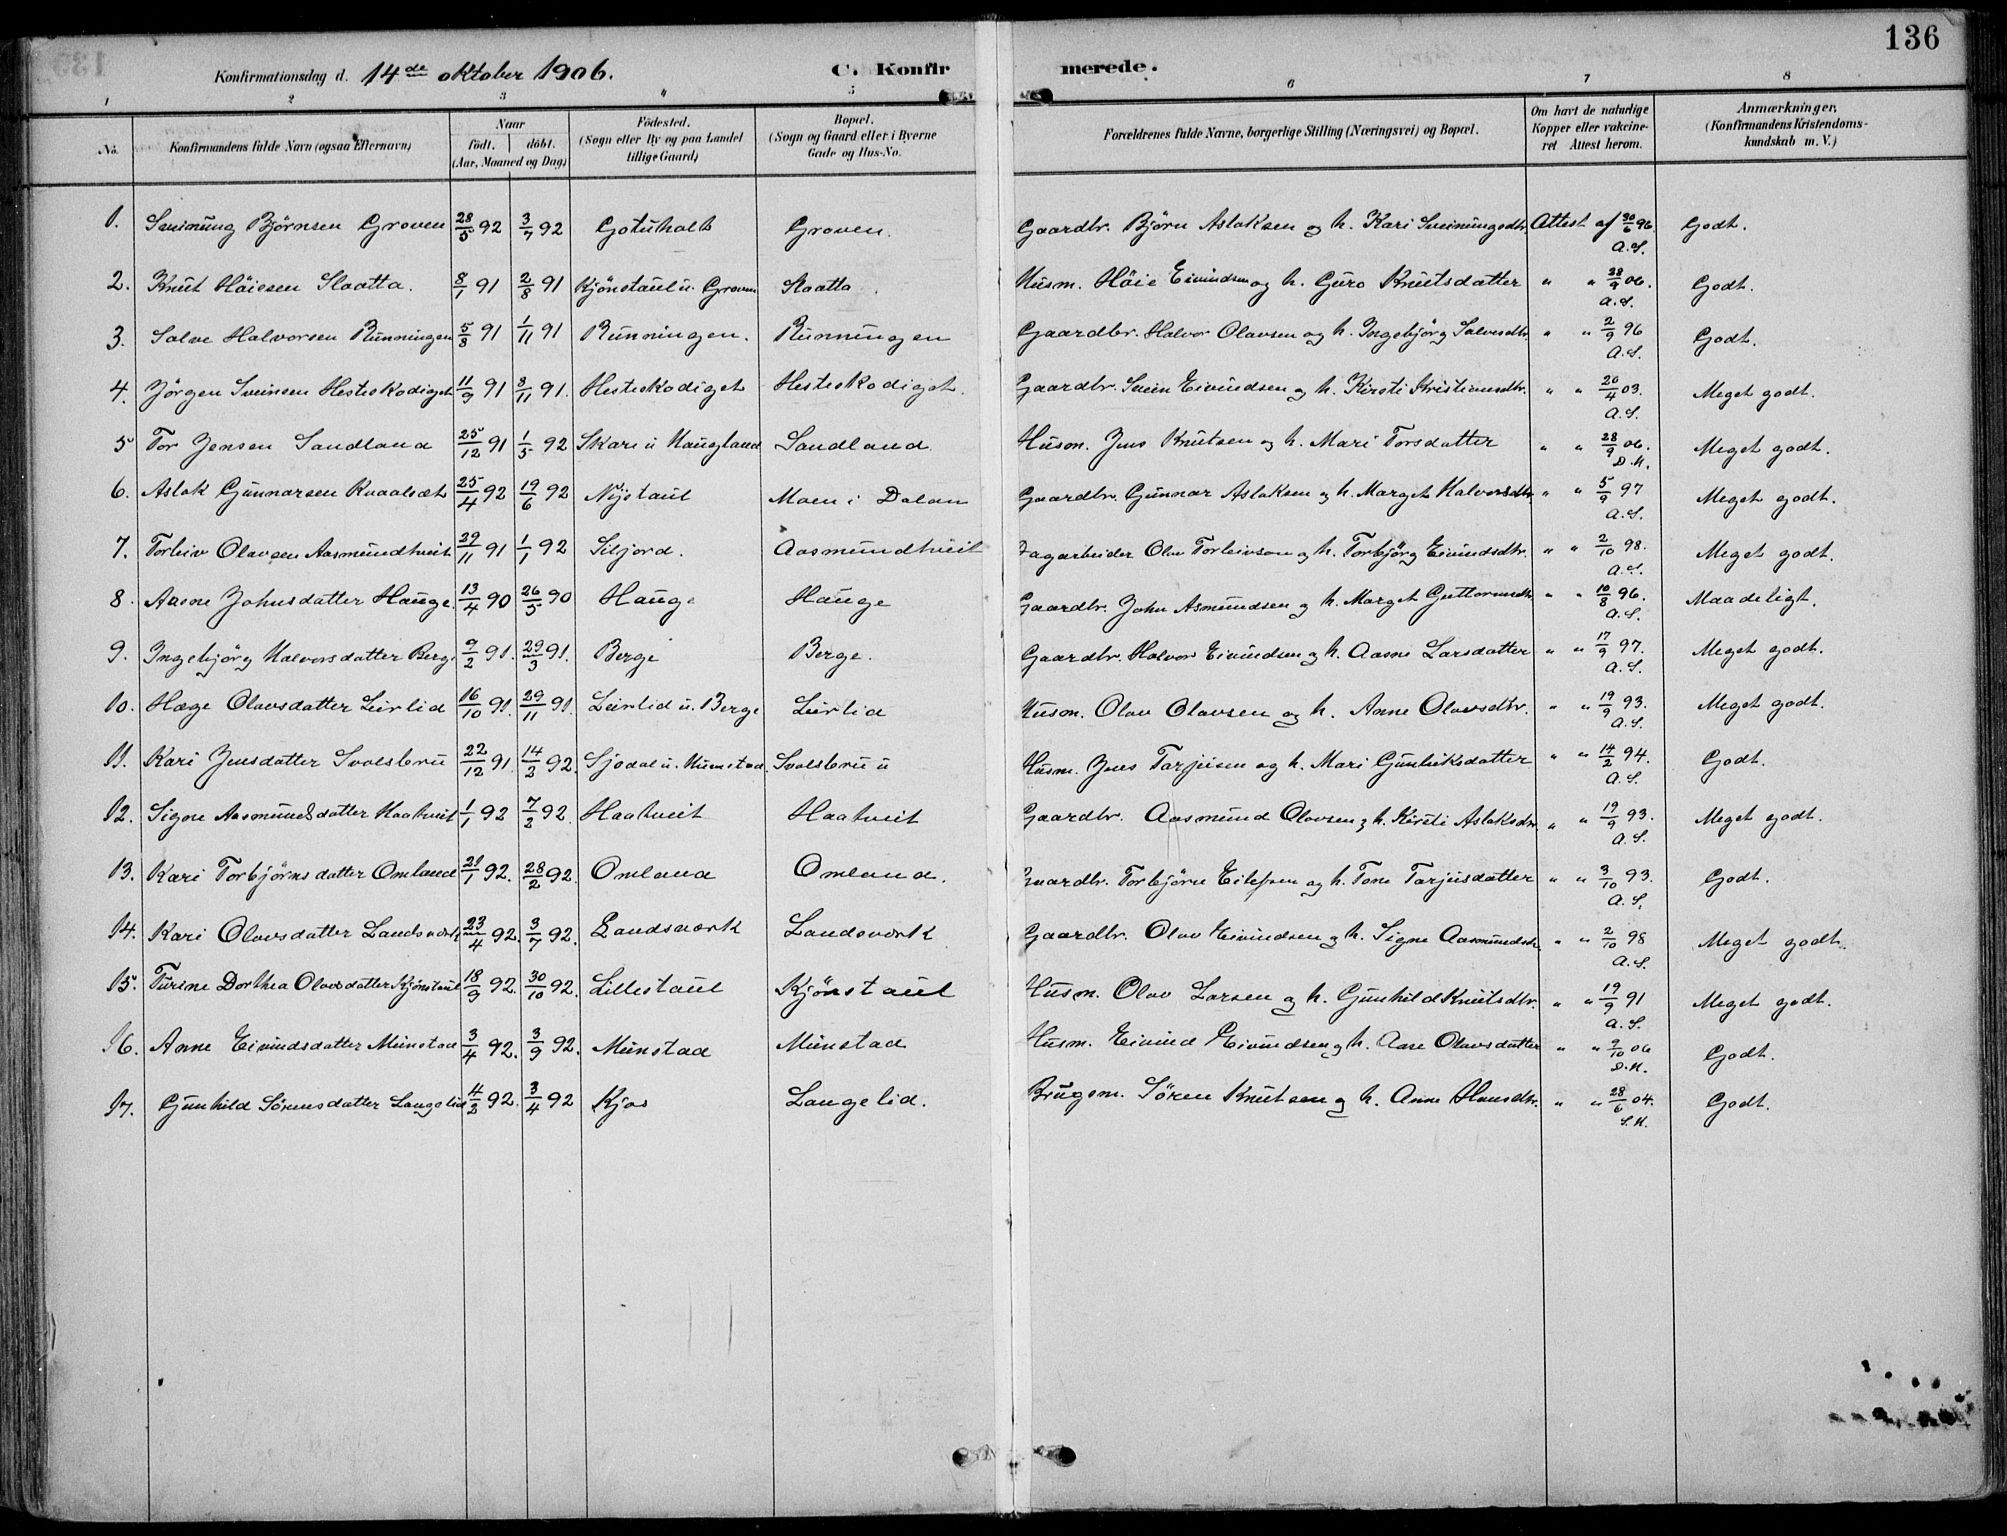 136
Konfirmationsdag d. 14de oktober 1906. C. Konfir merede.
1 2 3 4 5 6 7 8
No. Konfirmandens fulde Navn (ogsaa Efternavn) Naar födt. döbt. (Aar, Maaned og Dag) Födested. (Sogn eller By og paa Landet tillige Gaard) Bopæl. (Sogn og Gaard eller i Byerne Gade og Hus-No. Forældrenes fulde Navne, borgerlige Stilling (Næringsvei) og Bopæl. Om havt de naturlige Kopper eller vakcineret Attest herom. Anmærkninger. (Konfirmandens Kristendomskundskab m. V.)
1. Sveinung Bjørnsen Groven 28/5 92 3/7 92 Gotuholt Groven. Gaardbr. Björn Aslaksen og h. Kari Sveinungsdtr. Attest af 30/6 96. A.S. Godt.
2. Knut Höiesen Slaatta. 8/1 91 2/8 91 Kjönstaul u. Groven Slaatta. Husm. Höie Eivindsen og h. Guro Knutsdatter " " 28/9 06. A.S. Godt.
3. Salve Halvorsen Runningen 5/8 91 1/11 91 Runningen. Runningen Gaardbr. Halvor Olavsen og h. Ingebjörg Salvesdtr. " " 2/9 96 A.S. Godt.
4. Jörgen Sveinsen Hesteskodiget 11/9 91 8/11 91. Hesteskodiget Hesteskodiget. Gaardbr. Svein Eivindsen og h. Kirsti Kristiansdtr. " " 20/4 03. A.S. Meget godt.
5 Tor Jensen Sandland 25/12 91 1/5 92 Skare u Haugland Sandland. Husm. Jens Knutsen og h. Mari Torsdatter " " 28/9 06. D.H. Meget godt.
6. Aslak Gunnarsen Kvaalsæt 25/4 92 19/6 92 Nystaul Moen i Dalan Gaardbr. Gunnar Aslaksen og h. Marget Halvorsdtr. " " 5/9 97 A.S. Meget godt.
7. Torleiv Olavsen Aasmundtveit 29/11 91 1/1 92 Siljord. Aasmundtveit Dagarbeider Olav Torleivson og h. Torbjörg Eivindsdtr. " " 2/10 98. A.S. Meget godt.
8. Aasne Johnsdatter Hauge. 13/4 90 26/5 90 Hauge Hauge Gaardbr. John Asmundsen og h. Marget Guttormsdtr " " 10/8 96. A.S. Maadeligt.
9. Ingebjörg Halvorsdatter Berge 9/2 91. 29/3 91. Berge Berge. Gaardbr. Halvor Eivindsen og h. Aasne Larsdatter " " 17/9 97. A.S. Meget godt.
10. Hæge Olavsdatter Leirlid 16/10 91. 29/11 91. Leirlid u. Berge Leirlid Husm. Olav Olavsen og h. Anne Olavsdtr. " " 19/9 93. A.S. Meget godt.
11. Kari Jensdatter Svolsbru 22/12 91. 14/2 92. Sjodal u. Svolsbru u Husm. Jens Tarjeisen og h. Mari Gunleiksdatter " " 14/2 94. A.S. Godt.
12. Signe Aasmundsdatter Haatveit 1/1 92 7/2 92. Haatveit Haatveit Gaardbr. Aasmund Olavsen og h. Kirsti Aslaksdtr. " " 19/9 93. A.S. Meget godt.
13. Kari Torbjörnsdatter Omland 21/1 92. 28/2 92. Omland Omland. Gaardbr. Torbjörn Eilefsen og h. Tone Tarjeisdatter " " 3/10 93. A.S. Godt.
14. Kari Olavsdatter Landsværk 23/4 92. 3/7 92. Landsværk Landsværk Gaardbr. Olav Eivindsen og h. Signe Aasmundsdtr " " 2/10 98 A.S. Meget godt.
15. Turine Dorthea Olavsdatter Kjönstaul 18/9 92. 30/10 92. Lillestaul Kjönstaul Husm. Olav Larsen og h. Gunhild Knutsdtr. " " 19/9 91 A.S. Meget godt.
16. Anne Eivindsdatter Münstad 3/4 92. 3/9 92. Münstad Münstad Husm. Eivind Eivindsen og h. Aase Olavsdatter " " 9/10 06 D.H. Godt.
17. Gunhild Sörensdatter Langelid 4/2 92. 3/4 92 Kjos Langelid. Brugsm. Sören Knutsen og h. Anne Hansdtr. " " 28/6 04. S.H. Godt.